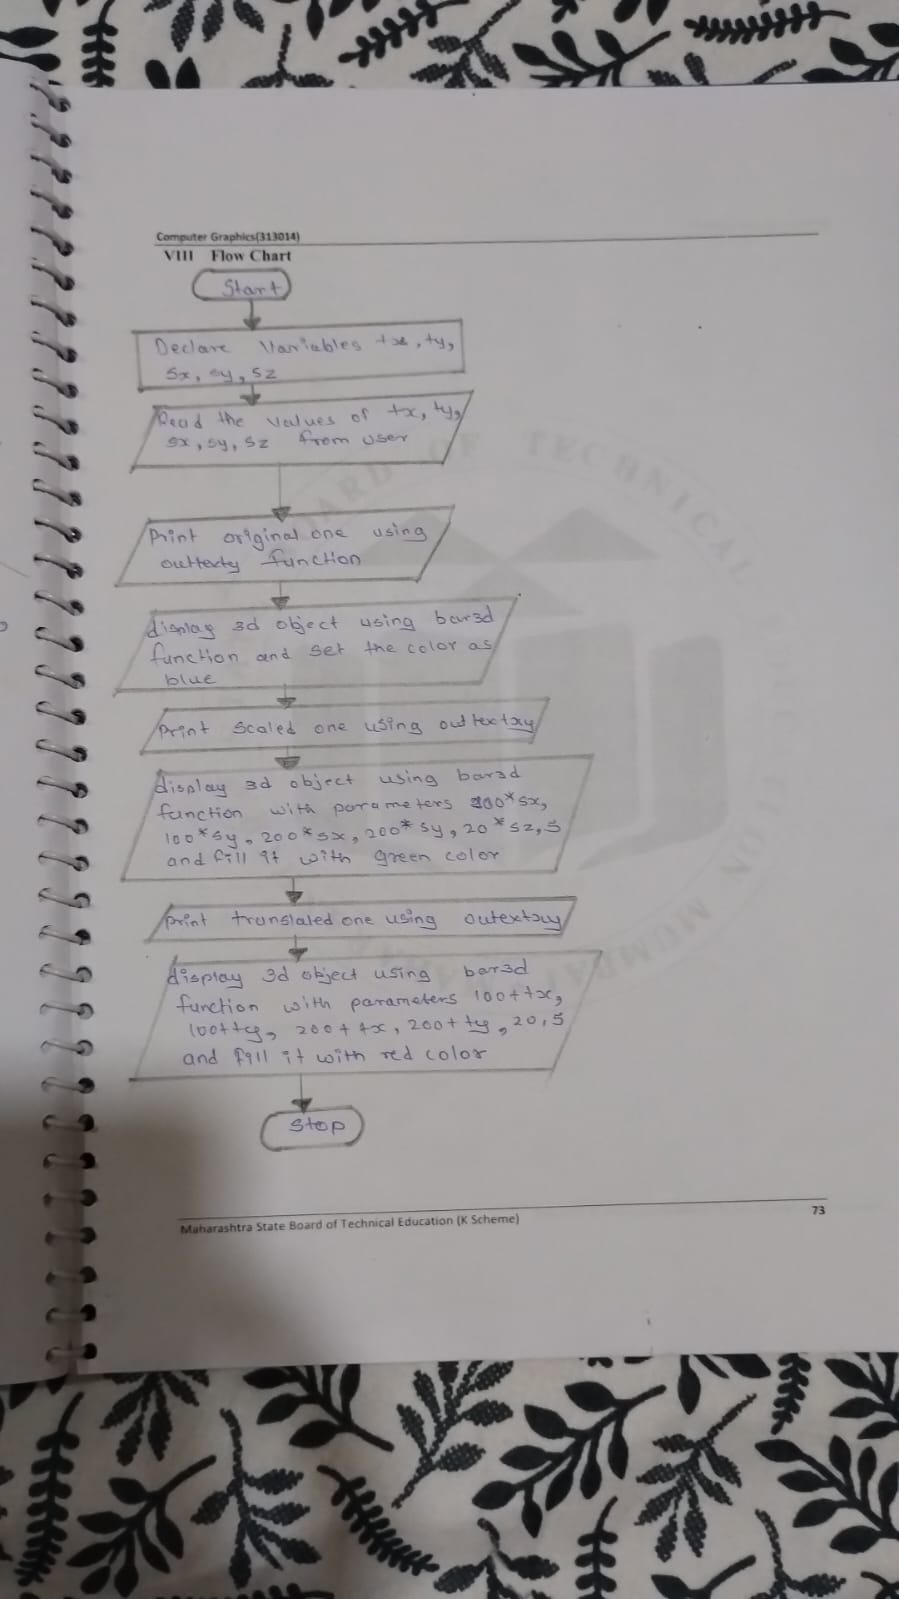 Computer Graphics(313014)
VIII Flow Chart
Start
Declare Variables tx, ty,
sx, sy, sz
Read the values of tx, ty,
sx, sy, sz from user
Print original one using
outtexty function
display 3d object using bar3d
function and set the color as
blue
Print scaled one using outtextxy
display 3d object using bar3d
function with parameters 100*sx,
100*sy, 200*sx, 200*sy, 20*sz, 5
and fill it with green color
print translated one using outextxy
display 3d object using bar3d
function with parameters 100+tx,
100+ty, 200+tx, 200+ty, 20, 5
and fill it with red color
Stop
Maharashtra State Board of Technical Education (K Scheme)
73
BOARD OF TECHNICAL EDUCATION MUMBAI